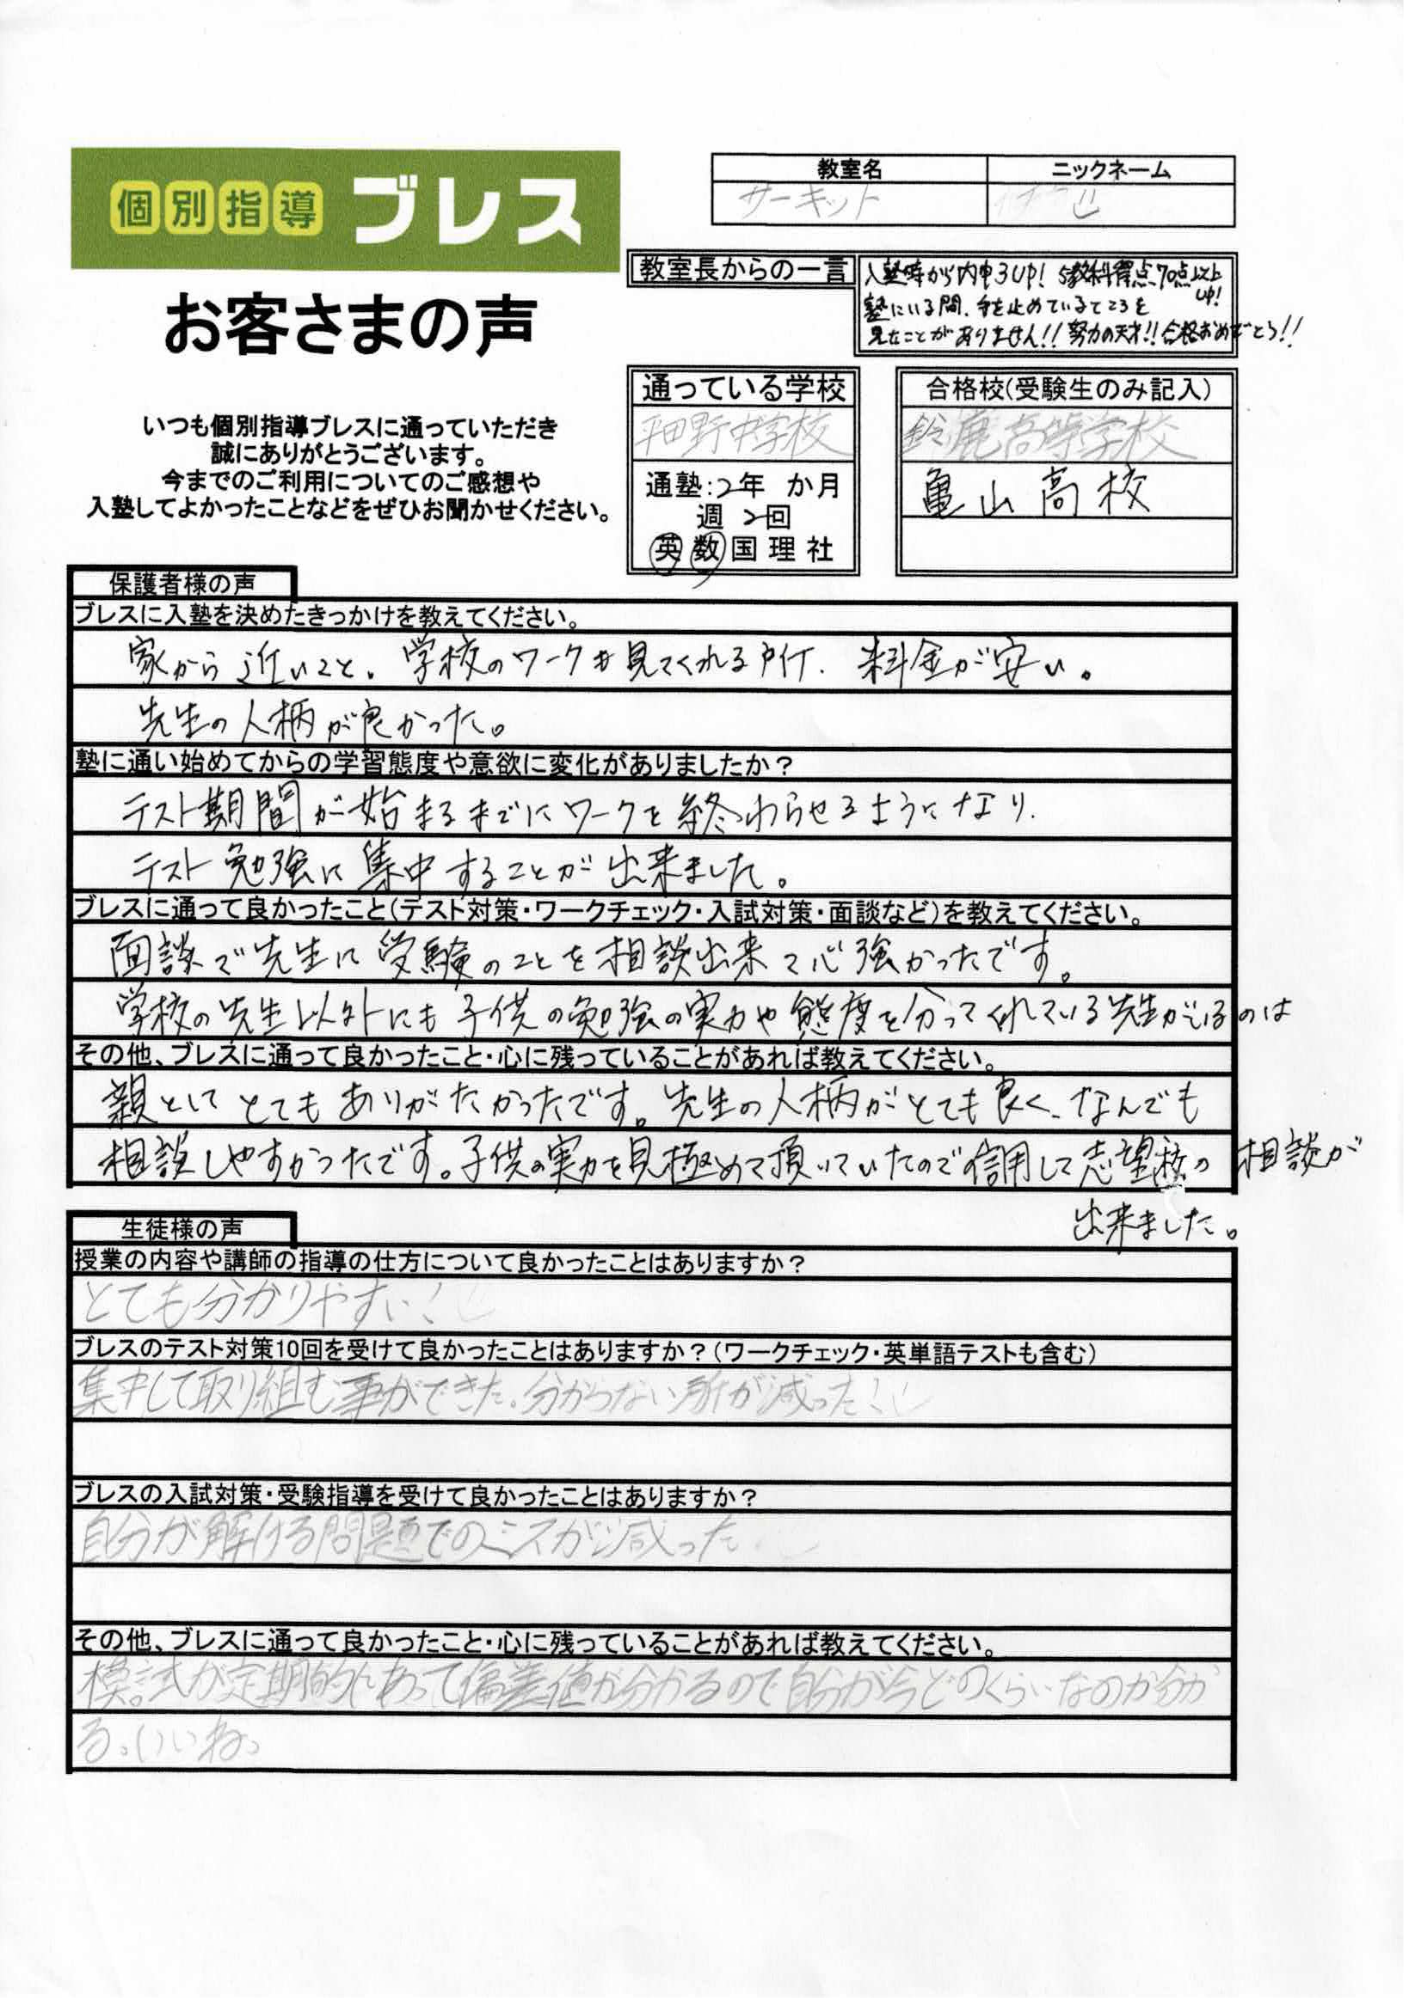 個別指導 ブレス
お客さまの声
いつも個別指導ブレスに通っていただき
誠にありがとうございます。
今までのご利用についてのご感想や
入塾してよかったことなどをぜひお聞かせください。
教室名 ニックネーム
サーキット
教室長からの一言
入塾時から内申3UP! 5教科得点70点以上UP!
塾にいる間、手を止めているところを
見たことがありません!! 努力の天才!! 合格おめでとう!!
通っている学校
野中学校
通塾:2年 か月
週 2回
英 数 国 理 社
合格校(受験生のみ記入)
鈴鹿高等学校
亀山高校
保護者様の声
ブレスに入塾を決めたきっかけを教えてください。
家から近いこと。学校のワークも見てくれる所、料金が安い。
先生の人柄が良かった。
塾に通い始めてからの学習態度や意欲に変化がありましたか?
テスト期間が始まるまでにワークを終わらせるようになり、
テスト勉強に集中することが出来ました。
ブレスに通って良かったこと(テスト対策・ワークチェック・入試対策・面談など)を教えてください。
面談で先生に受験のことを相談出来て心強かったです。
学校の先生以外にも子供の勉強の実力や態度を分ってくれている先生がいるのは
その他、ブレスに通って良かったこと・心に残っていることがあれば教えてください。
親としてとてもありがたかったです。先生の人柄がとても良く、なんでも
相談しやすかったです。子供の実力を見極めて頂いていたので信用して志望校の相談が
出来ました。
生徒様の声
授業の内容や講師の指導の仕方について良かったことはありますか?
とても分かりやすい!
ブレスのテスト対策10回を受けて良かったことはありますか?(ワークチェック・英単語テストも含む)
集中して取り組む事ができた。分からない所が減った!
ブレスの入試対策・受験指導を受けて良かったことはありますか?
自分が解ける問題でのミスが減った
その他、ブレスに通って良かったこと・心に残っていることがあれば教えてください。
模試が定期的にあって偏差値が分かるので自分が今どのくらいなのか分か
る。いいね。